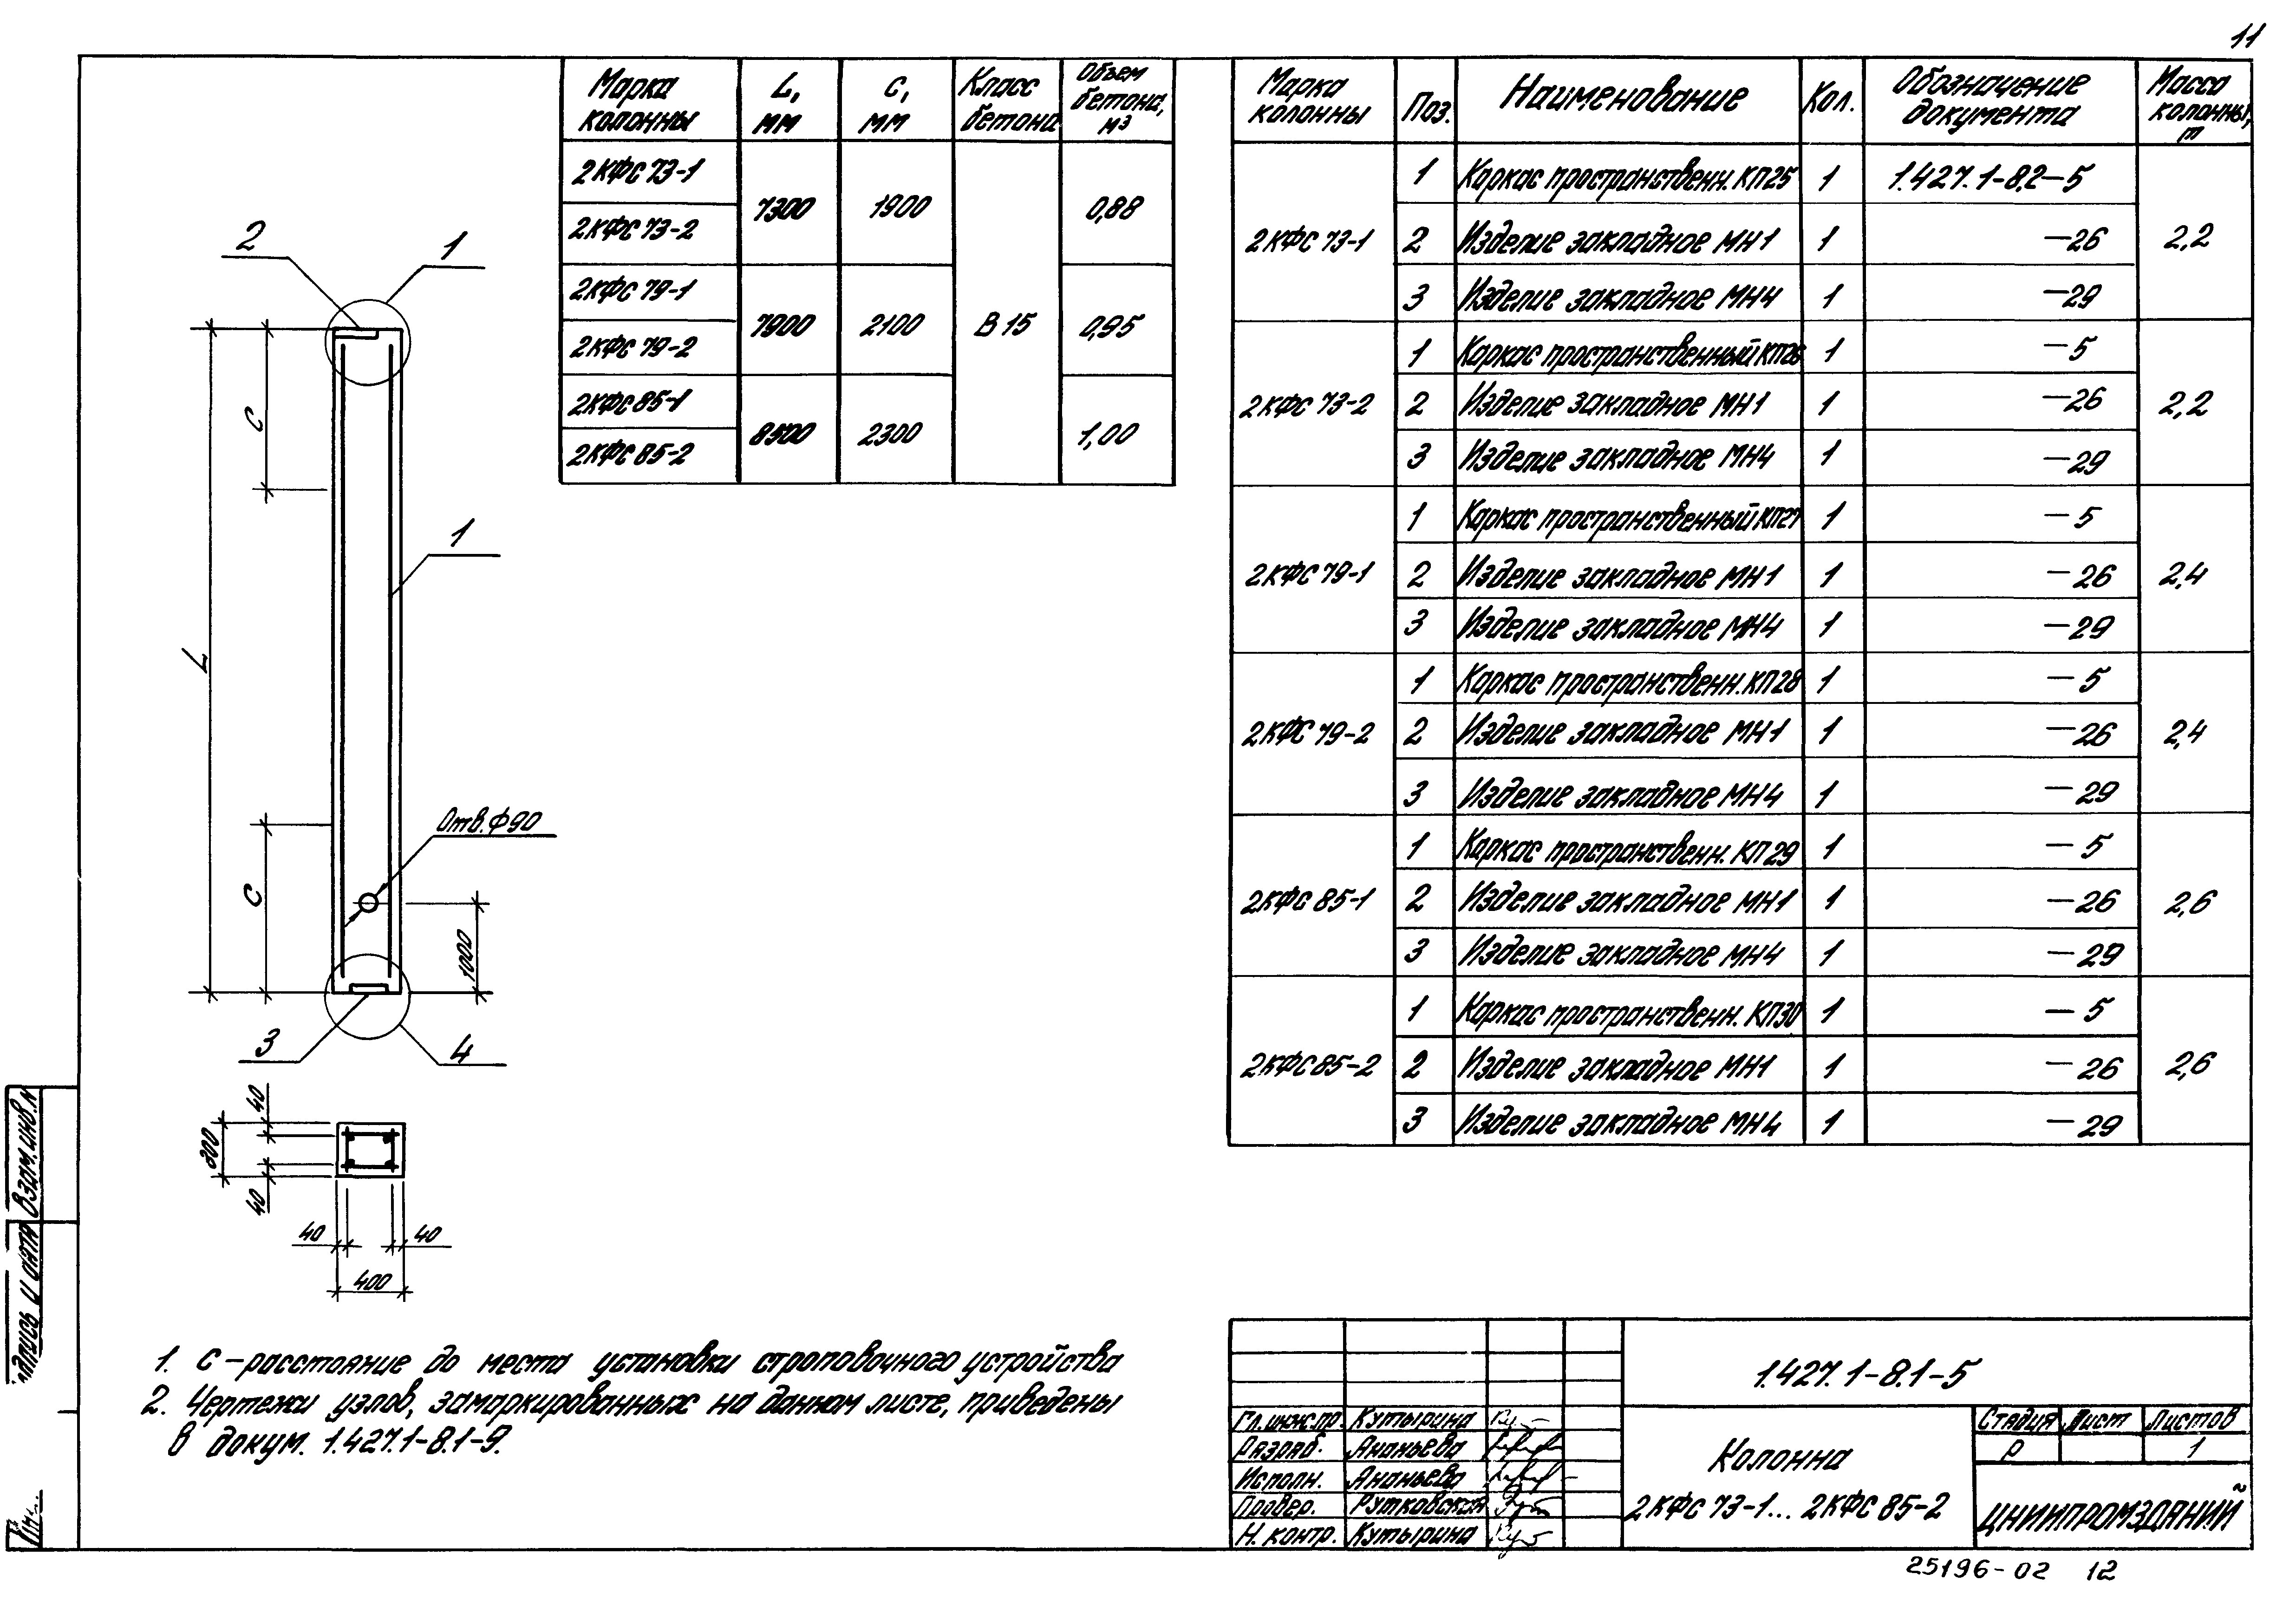 11
Марка колонны | L, мм | С, мм | Класс бетона | Объем бетона, м³
2КФС 73-1 | 7300 | 1900 | В 15 | 0,88
2КФС 73-2
2КФС 79-1 | 7900 | 2100 | 0,95
2КФС 79-2
2КФС 85-1 | 8500 | 2300 | 1,00
2КФС 85-2
Марка колонны | Поз. | Наименование | Кол. | Обозначение документа | Масса колонны, т
2КФС 73-1 | 1 | Каркас пространственн. КП25 | 1 | 1.427.1-8.2-5 | 2,2
2 | Изделие закладное МН1 | 1 | -26
3 | Изделие закладное МН4 | 1 | -29
2КФС 73-2 | 1 | Каркас пространственный КП26 | 1 | -5 | 2,2
2 | Изделие закладное МН1 | 1 | -26
3 | Изделие закладное МН4 | 1 | -29
2КФС 79-1 | 1 | Каркас пространственный КП27 | 1 | -5 | 2,4
2 | Изделие закладное МН1 | 1 | -26
3 | Изделие закладное МН4 | 1 | -29
2КФС 79-2 | 1 | Каркас пространственн. КП28 | 1 | -5 | 2,4
2 | Изделие закладное МН1 | 1 | -26
3 | Изделие закладное МН4 | 1 | -29
2КФС 85-1 | 1 | Каркас пространственн. КП29 | 1 | -5 | 2,6
2 | Изделие закладное МН1 | 1 | -26
3 | Изделие закладное МН4 | 1 | -29
2КФС 85-2 | 1 | Каркас пространственн. КП30 | 1 | -5 | 2,6
2 | Изделие закладное МН1 | 1 | -26
3 | Изделие закладное МН4 | 1 | -29
2
1
С
1
L
Отв. ф 90
С
1000
3
4
40
300
40
40
40
400
1. С - расстояние до места установки строповочного устройства
2. Чертежи узлов, замаркированных на данном листе, приведены
в докум. 1.427.1-8.1-9.
Взам. инв. N
и дата
1.427.1-8.1-5
Гл. инж. пр. Кутырина
Разраб. Ананьева
Исполн. Ананьева
Провер. Рутковская
Н. контр. Кутырина
Колонна
2КФС 73-1... 2КФС 85-2
Стадия | Лист | Листов
Р | | 1
ЦНИИПРОМЗДАНИЙ
25196-02 12